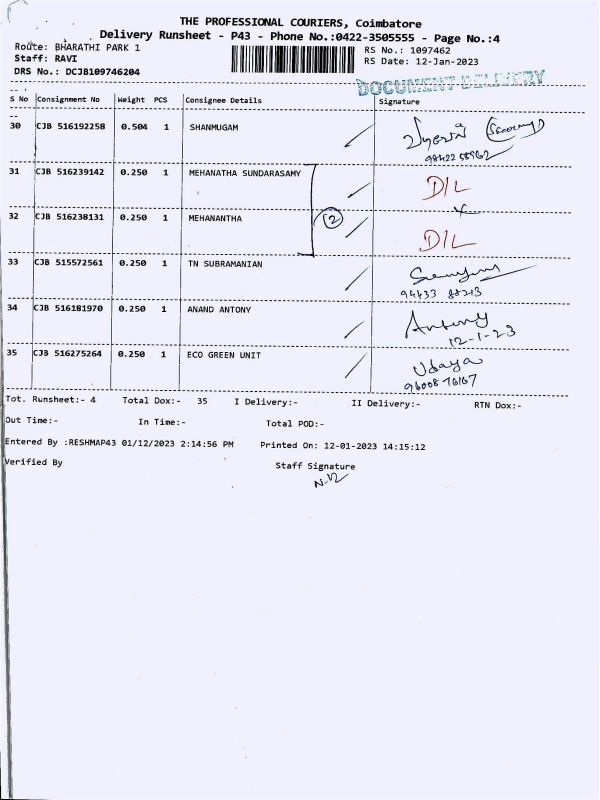 THE PROFESSIONAL COURIERS, Coimbatore
Delivery Runsheet - P43 - Phone No.:0422-3505555 - Page No.:4
Route: BHARATHI PARK 1
RS No.: 1097462
Staff: RAVI
RS Date: 12-Jan-2023
DRS No.: DCJB109746204
DOCUMENT DELIVERY
S No Consignment No Weight PCS Consignee Details Signature
30 CJB 516192258 0.504 1 SHANMUGAM
31 CJB 516239142 0.250 1 MEHANATHA SUNDARASAMY D/L
32 CJB 516238131 0.250 1 MEHANANTHA (2) D/L
33 CJB 515572561 0.250 1 TN SUBRAMANIAN
34 CJB 516181970 0.250 1 ANAND ANTONY Antony
12-1-23
35 CJB 516275264 0.250 1 ECO GREEN UNIT Udaya
96008 76167
Tot. Runsheet:- 4 Total Dox:- 35 I Delivery:- II Delivery:- RTN Dox:-
Out Time:- In Time:- Total POD:-
Entered By :RESHMAP43 01/12/2023 2:14:56 PM Printed On: 12-01-2023 14:15:12
Verified By Staff Signature